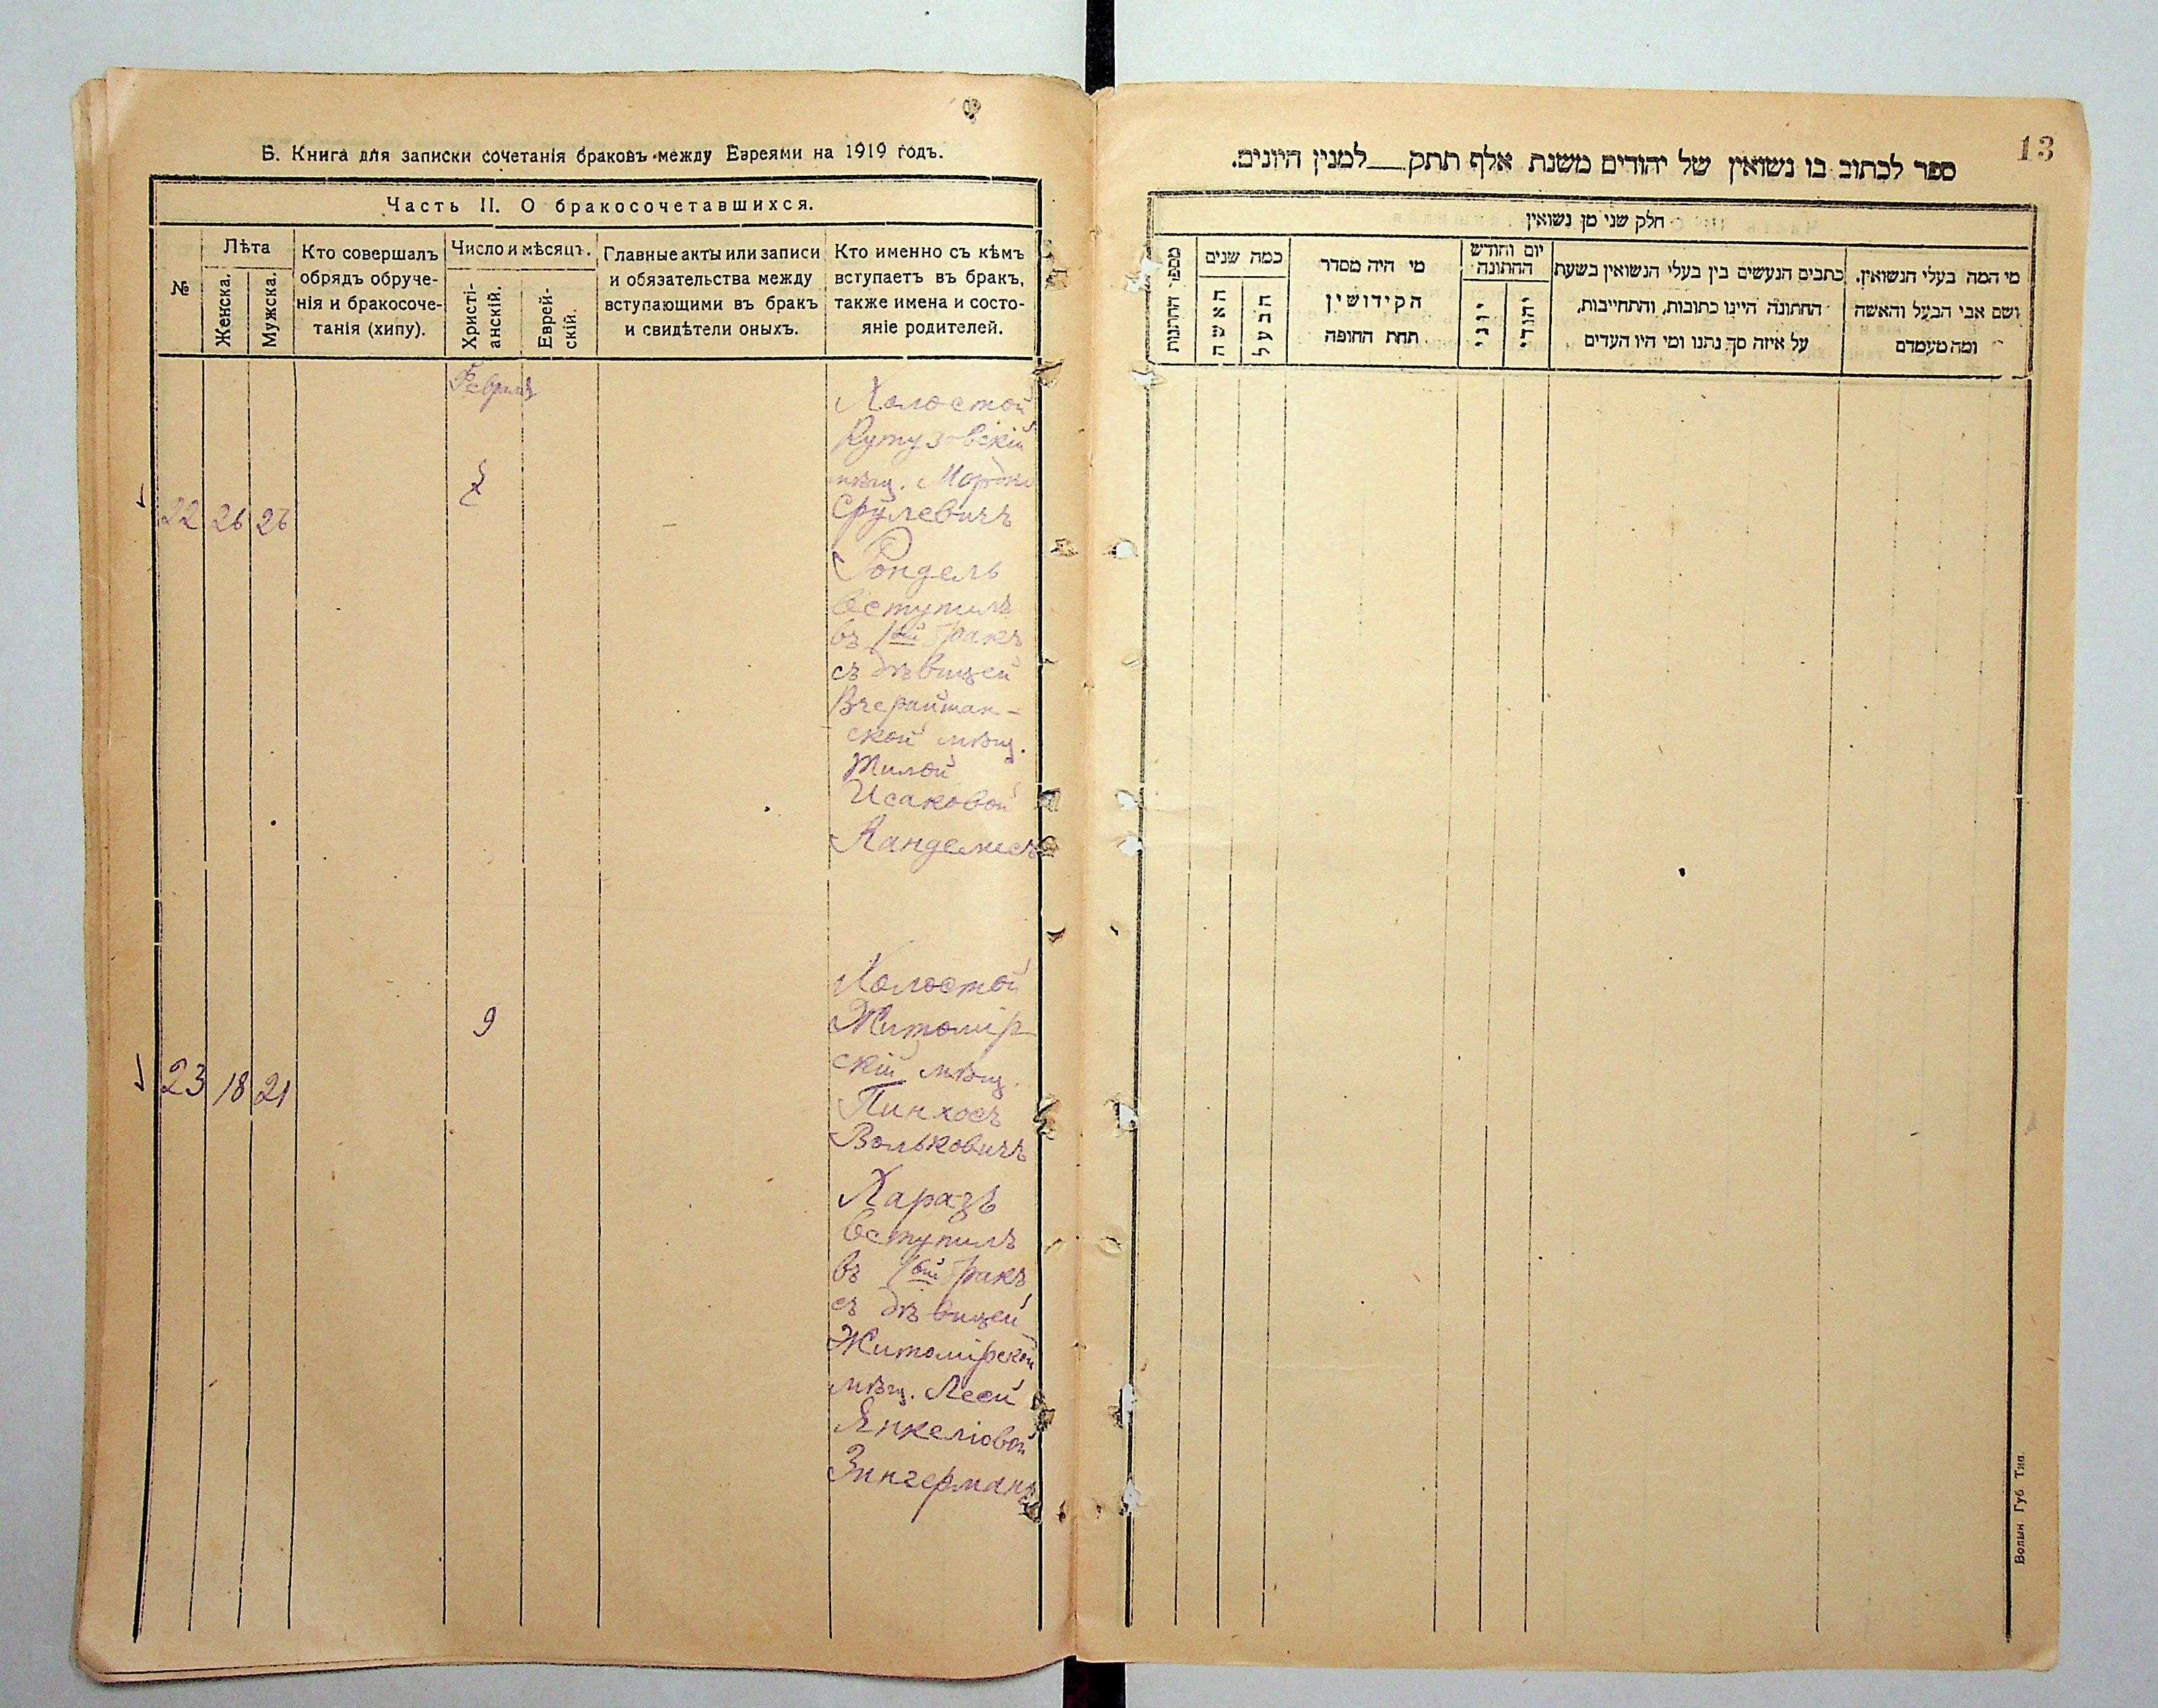 Б. Книга для записки сочетанія браковъ между Евреями на 1919 годъ.
Часть II. О бракосочетавшихся.
№
Лѣта
Женска.
Мужска.
Кто совершалъ
обрядъ обруче-
нія и бракосоче-
танія (хипу).
Число и мѣсяцъ.
Христі-
анскій.
Еврей-
скій.
Главные акты или записи
и обязательства между
вступающими въ бракъ
и свидѣтели оныхъ.
Кто именно съ кѣмъ
вступаетъ въ бракъ,
также имена и состо-
яніе родителей.
Февраль
22 26 26
Холостой
Кутузовскій
мѣщ. Мордко
Срулевичъ
Рондель
вступилъ
въ 1вый бракъ
съ дѣвицей
Вчерайшан-
ской мѣщ.
Исаковой
23 18 21
9
Холостой
Житомір-
скій мѣщ.
Пинхосъ
Вольковичъ
Харазъ
вступилъ
въ 1вый бракъ
съ дѣвицей
Житомірской
мѣщ. Лееи
Янкеліовой
Зингерманъ
13
ספר לכתוב בו נשואין של יהודים משנת אלף תתק__למנין היונים.
חלק שני מן נשואין
מספר החתונות
כמה שנים
האשה
הבעל
מי היה מסדר
הקידושין
תחת החופה
יום וחודש
החתונה
יוני
יהודי
כתבים הנעשים בין בעלי הנשואין בשעת
החתונה היינו כתובות, והתחייבות,
על איזה סך נתנו ומי היו העדים
מי המה בעלי הנשואין,
ושם אבי הבעל והאשה
ומה מעמדם
Волын Губ Тип.